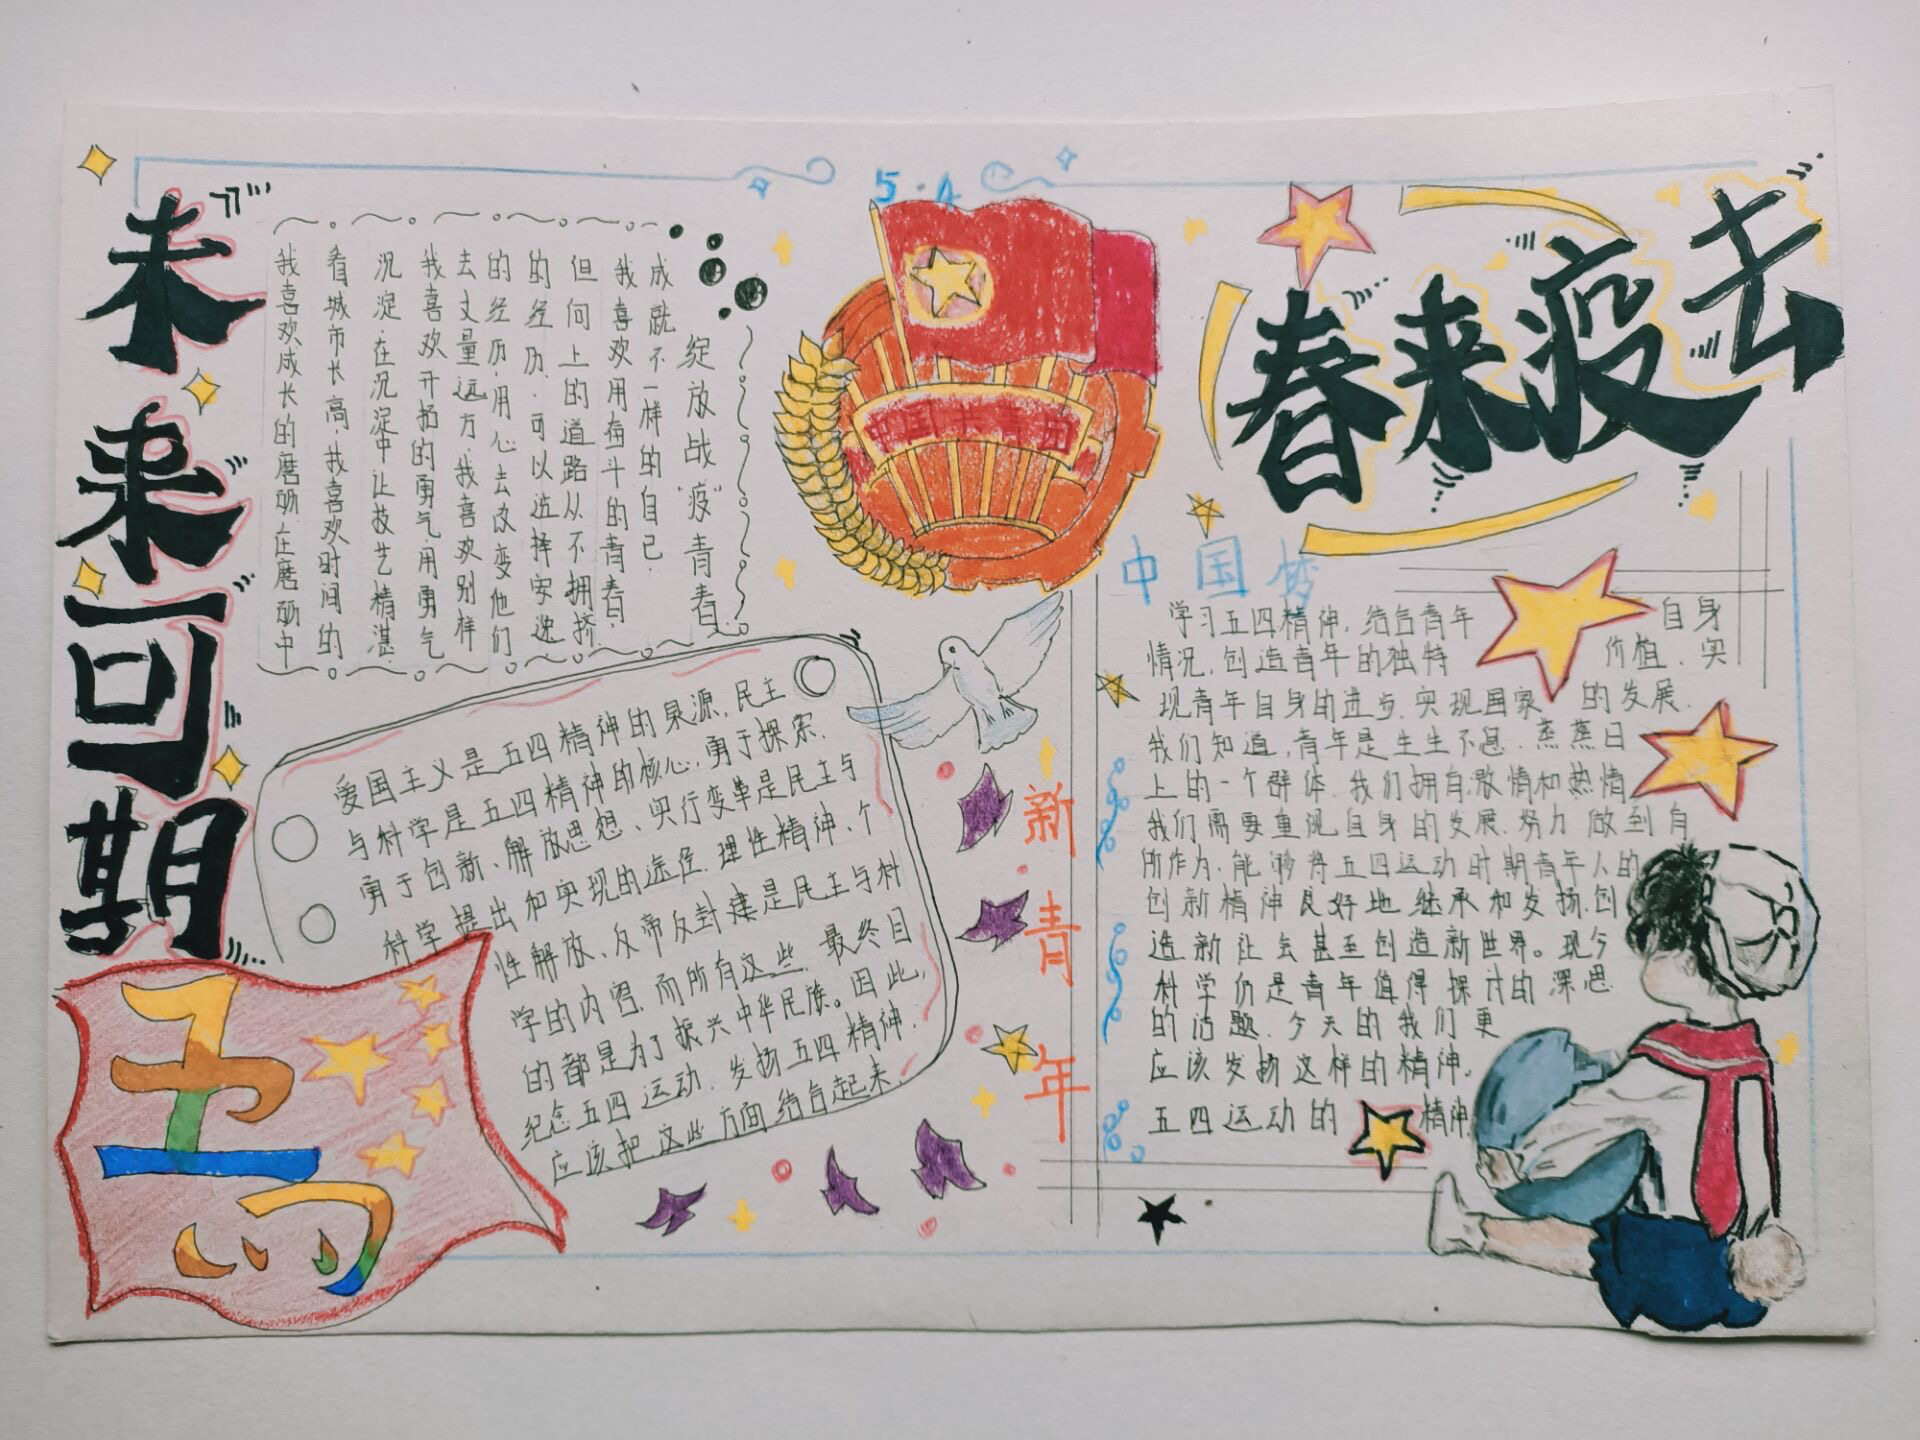 未来可期
5·4
春来疫去
绽放战“疫”青春
我喜欢成长的磨砺.在磨砺中
看城市长高.我喜欢时间的
沉淀.在沉淀中让技艺精湛.
我喜欢开拓的勇气用勇气
去丈量远方.我喜欢别样
的经历.用心去改变他们
的经历.可以选择安逸
但向上的道路从不拥挤
我喜欢用奋斗的青春,
成就不一样的自己.
中国共青团
爱国主义是五四精神的泉源,民主
与科学是五四精神的核心,勇于探索、
勇于创新、解放思想、实行变革是民主与
科学提出和实现的途径.理性精神、个
性解放、反帝反封建是民主与科
学的内容.而所有这些,最终目
的都是为了振兴中华民族。因此,
纪念五四运动.发扬五四精神.
应该把这些方向结合起来.
新青年
中国梦
学习五四精神,结合青年自身
情况,创造青年的独特价值、实
现青年自身的进步.实现国家的发展.
我们知道,青年是生生不息.蒸蒸日
上的一个群体.我们拥有激情和热情
我们需要重视自身的发展.努力做到有
所作为,能够将五四运动时期青年人的
创新精神良好地继承和发扬.创
造新社会甚至创造新世界。现今
科学仍是青年值得探讨的深思
的话题.今天的我们更
应该发扬这样的精神。
五四运动的精神.